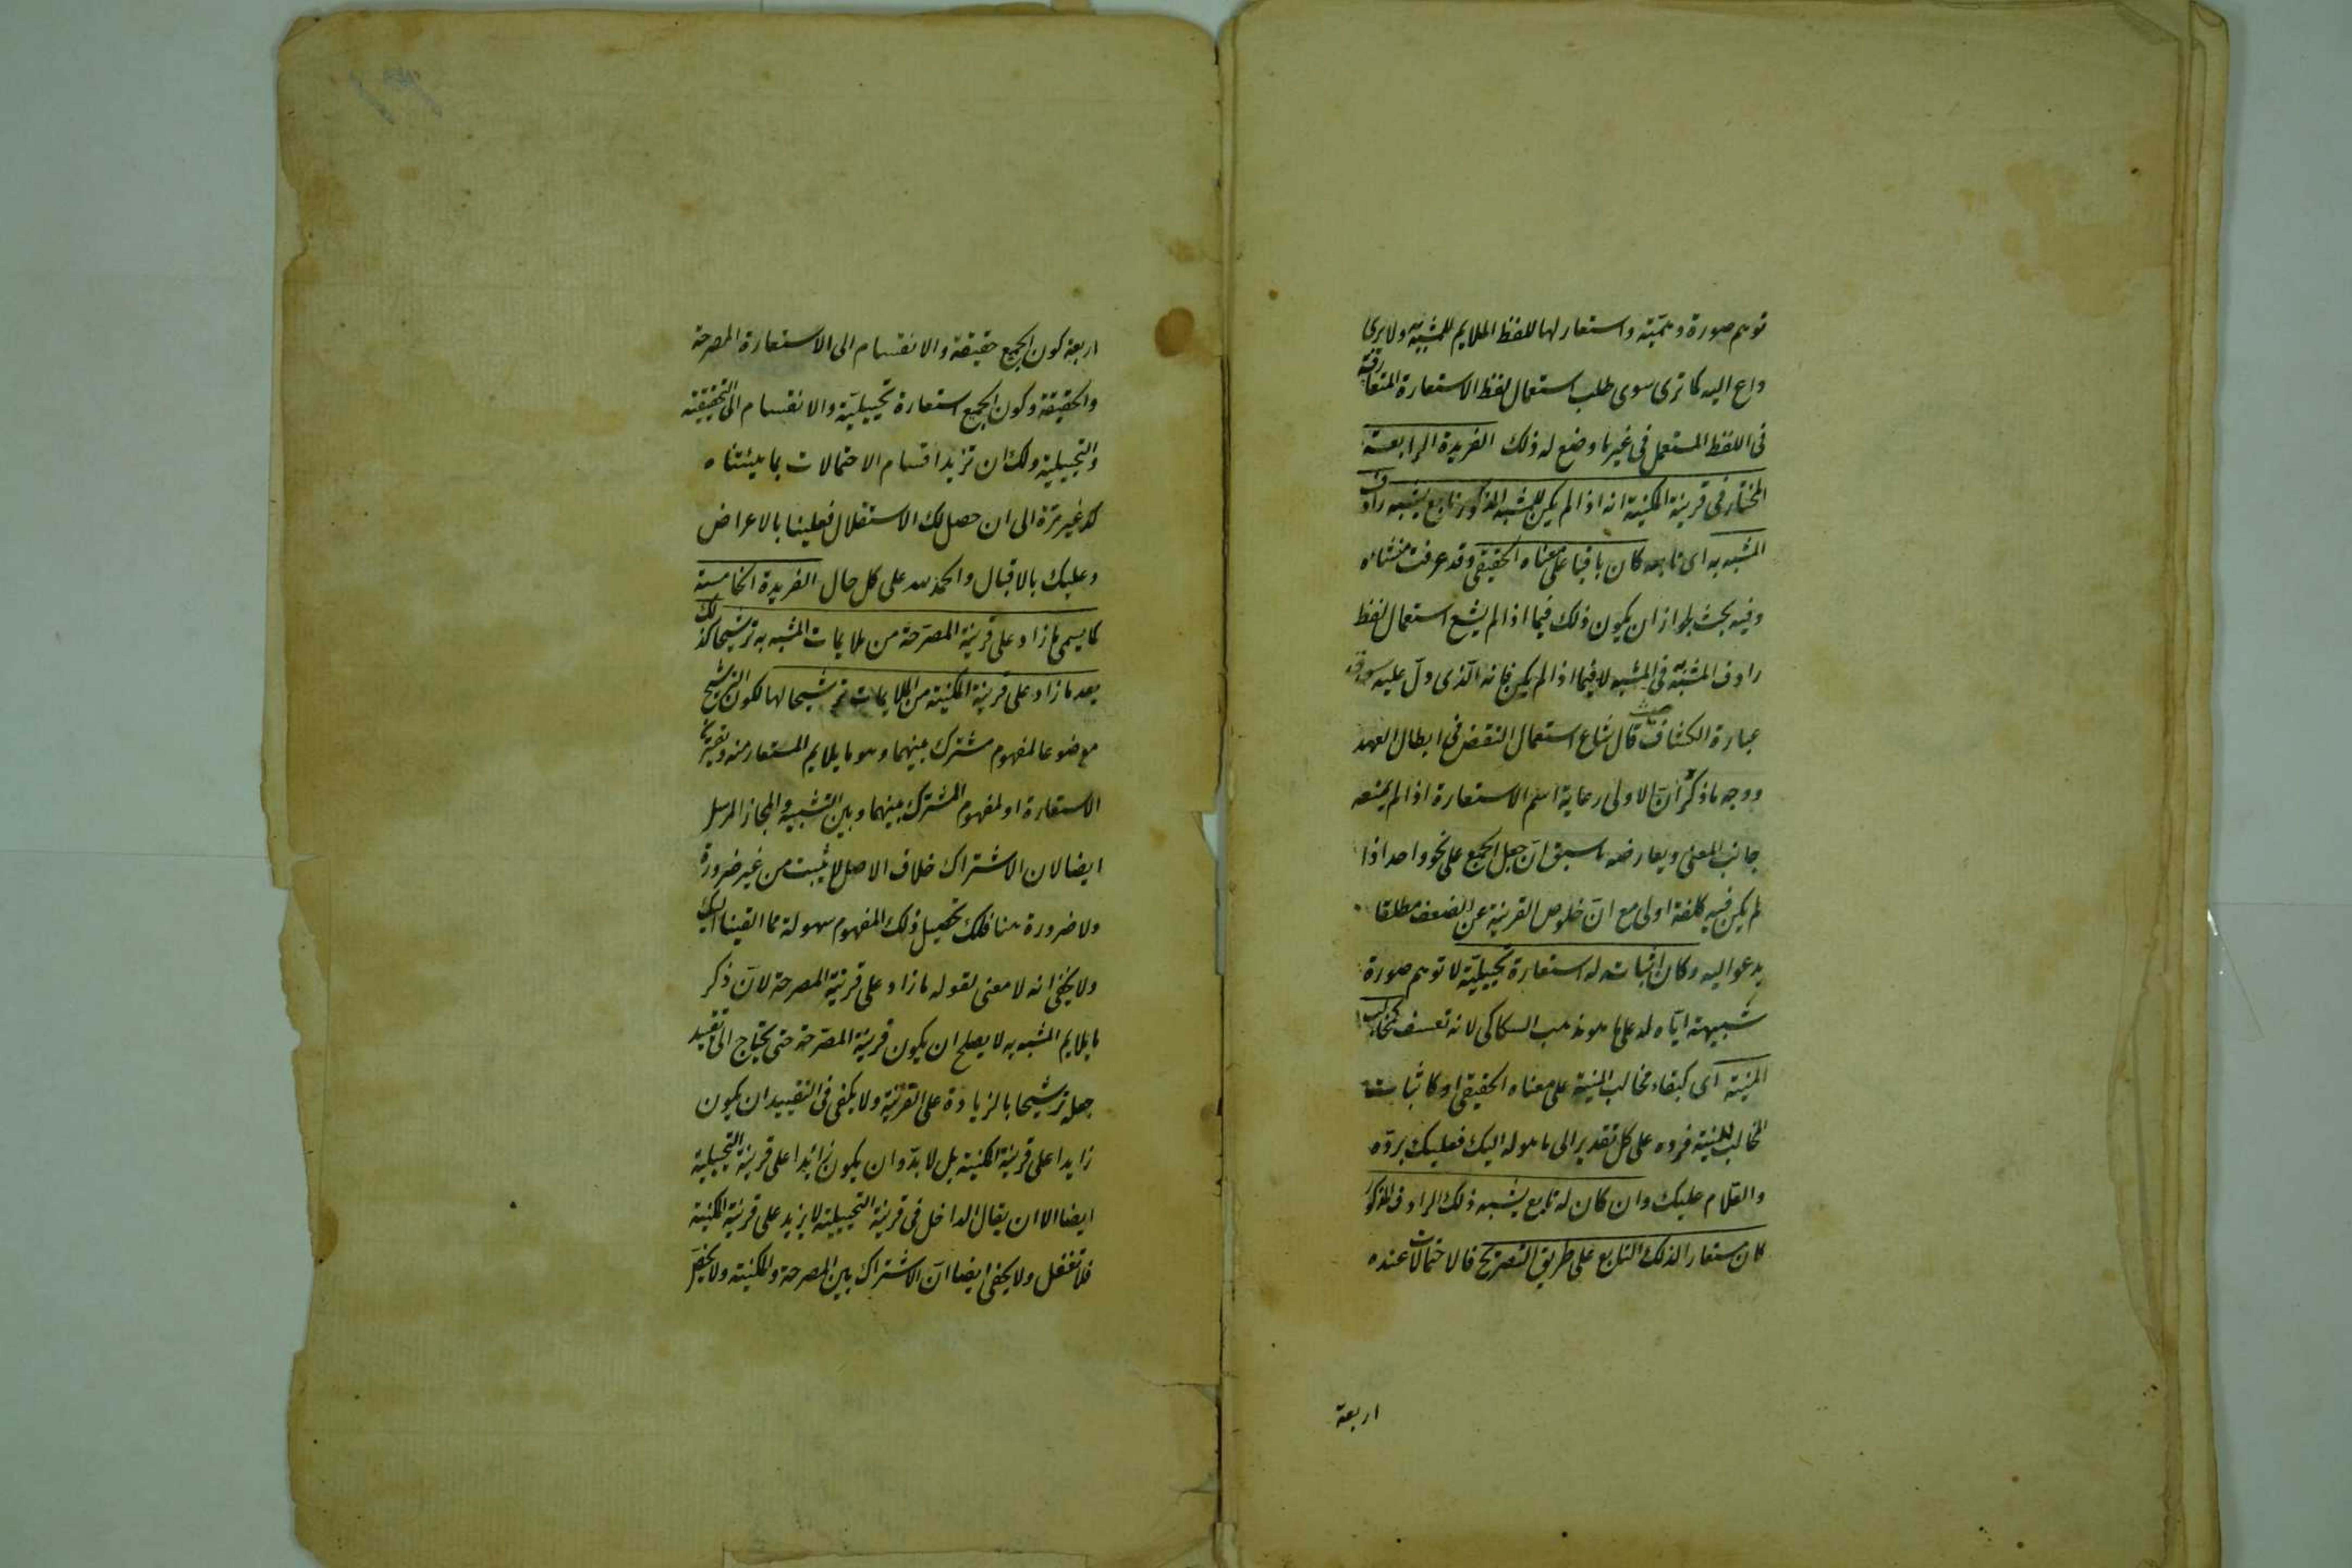 توهم صورة وهمية واستعار لها للفظ الملايم للمشبه به ولا يرى
داع اليه كما ترى سوى طلب استعمال لفظ الاستعارة المتعارفة
فى اللفظ المستعمل فى غير ما وضع له ذلك الفريدة الرابعة
المختار فى قرينة المكنية انه اذا لم يكن للمشبه المذكور تابع يشبه رادف
المشبه به اى تابعه كان باقيا على معناه الحقيقى وقد عرفت منشاه
وفيه بحث لجواز ان يكون ذلك فيما اذا لم يشع استعمال لفظ
رادف المشبه به فى المشبه لا فيما اذا لم يكن فانه الذى دل عليه سوق
عبارة الكشاف حيث قال شاع استعمال النقض فى ابطال العهد
ووجه ما ذكر ان الاولى رعاية اسم الاستعارة اذا لم يمنعه
جانب المعنى ويعارضه ما سبق ان جعل الجميع على نحو واحد اذا
لم يكن فيه كلفة اولى مع ان خلوص القرينة عن الضعف مطلقا
يدعو اليه وكان اثباته له استعارة تخييلية لا توهم صورة
شبيهة اياه له على ما هو مذهب السكاكى لانه تعسف كمخالب
المنية اى كبقاء مخالب المنية على معناه الحقيقى او كاثبات
المخالب للمنية فرده على كل تقدير الى ما هو له اليك فعليك برده
والسلام عليك وان كان له تابع يشبه ذلك الرادف المذكور
كان مستعارا لذلك التابع على طريق التصريح فالاحتمالات عنده
اربعة
اربعة كون الجميع حقيقة والانقسام الى الاستعارة المصرحة
والحقيقة وكون الجميع استعارة تخييلية والانقسام الى التحقيقية
والتخييلية ولك ان تزيد اقسام الاحتمالات بما بيناه
لك غير مرة الى ان حصل لك الاستقلال فعلينا بالاعراض
وعليك بالاقبال والحمد لله على كل حال الفريدة الخامسة
كما يسمى ما زاد على قرينة المصرحة من ملايمات المشبه به ترشيحا كذلك
يعد ما زاد على قرينة المكنية من الملايمات ترشيحا لها لكون الترشيح
موضوعا لمفهوم مشترك بينهما وهو ما يلايم المستعار منه
الاستعارة او لمفهوم المشترك بينهما وبين التشبيه والمجاز المرسل
ايضا لان الاشتراك خلاف الاصل لا يثبت من غير ضرورة
ولا ضرورة هنا فلك تحصيل ذلك المفهوم سهولة مما القينا اليك
ولا يخفى انه لا معنى لقوله ما زاد على قرينة المصرحة لان ذكر
ما يلايم المشبه به لا يصلح ان يكون قرينة المصرحة حتى يحتاج الى تقييد
جعله ترشيحا بالزيادة على القرينة ولا يكفى فى التقييد ان يكون
زايدا على قرينة المكنية بل لا بد وان يكون زايدا على قرينة التخييلية
ايضا الا ان يقال الداخل فى قرينة التخييلية لا يزيد على قرينة المكنية
فلا تغفل ولا يخفى ايضا ان الاشتراك بين المصرحة والمكنية ولا يختص